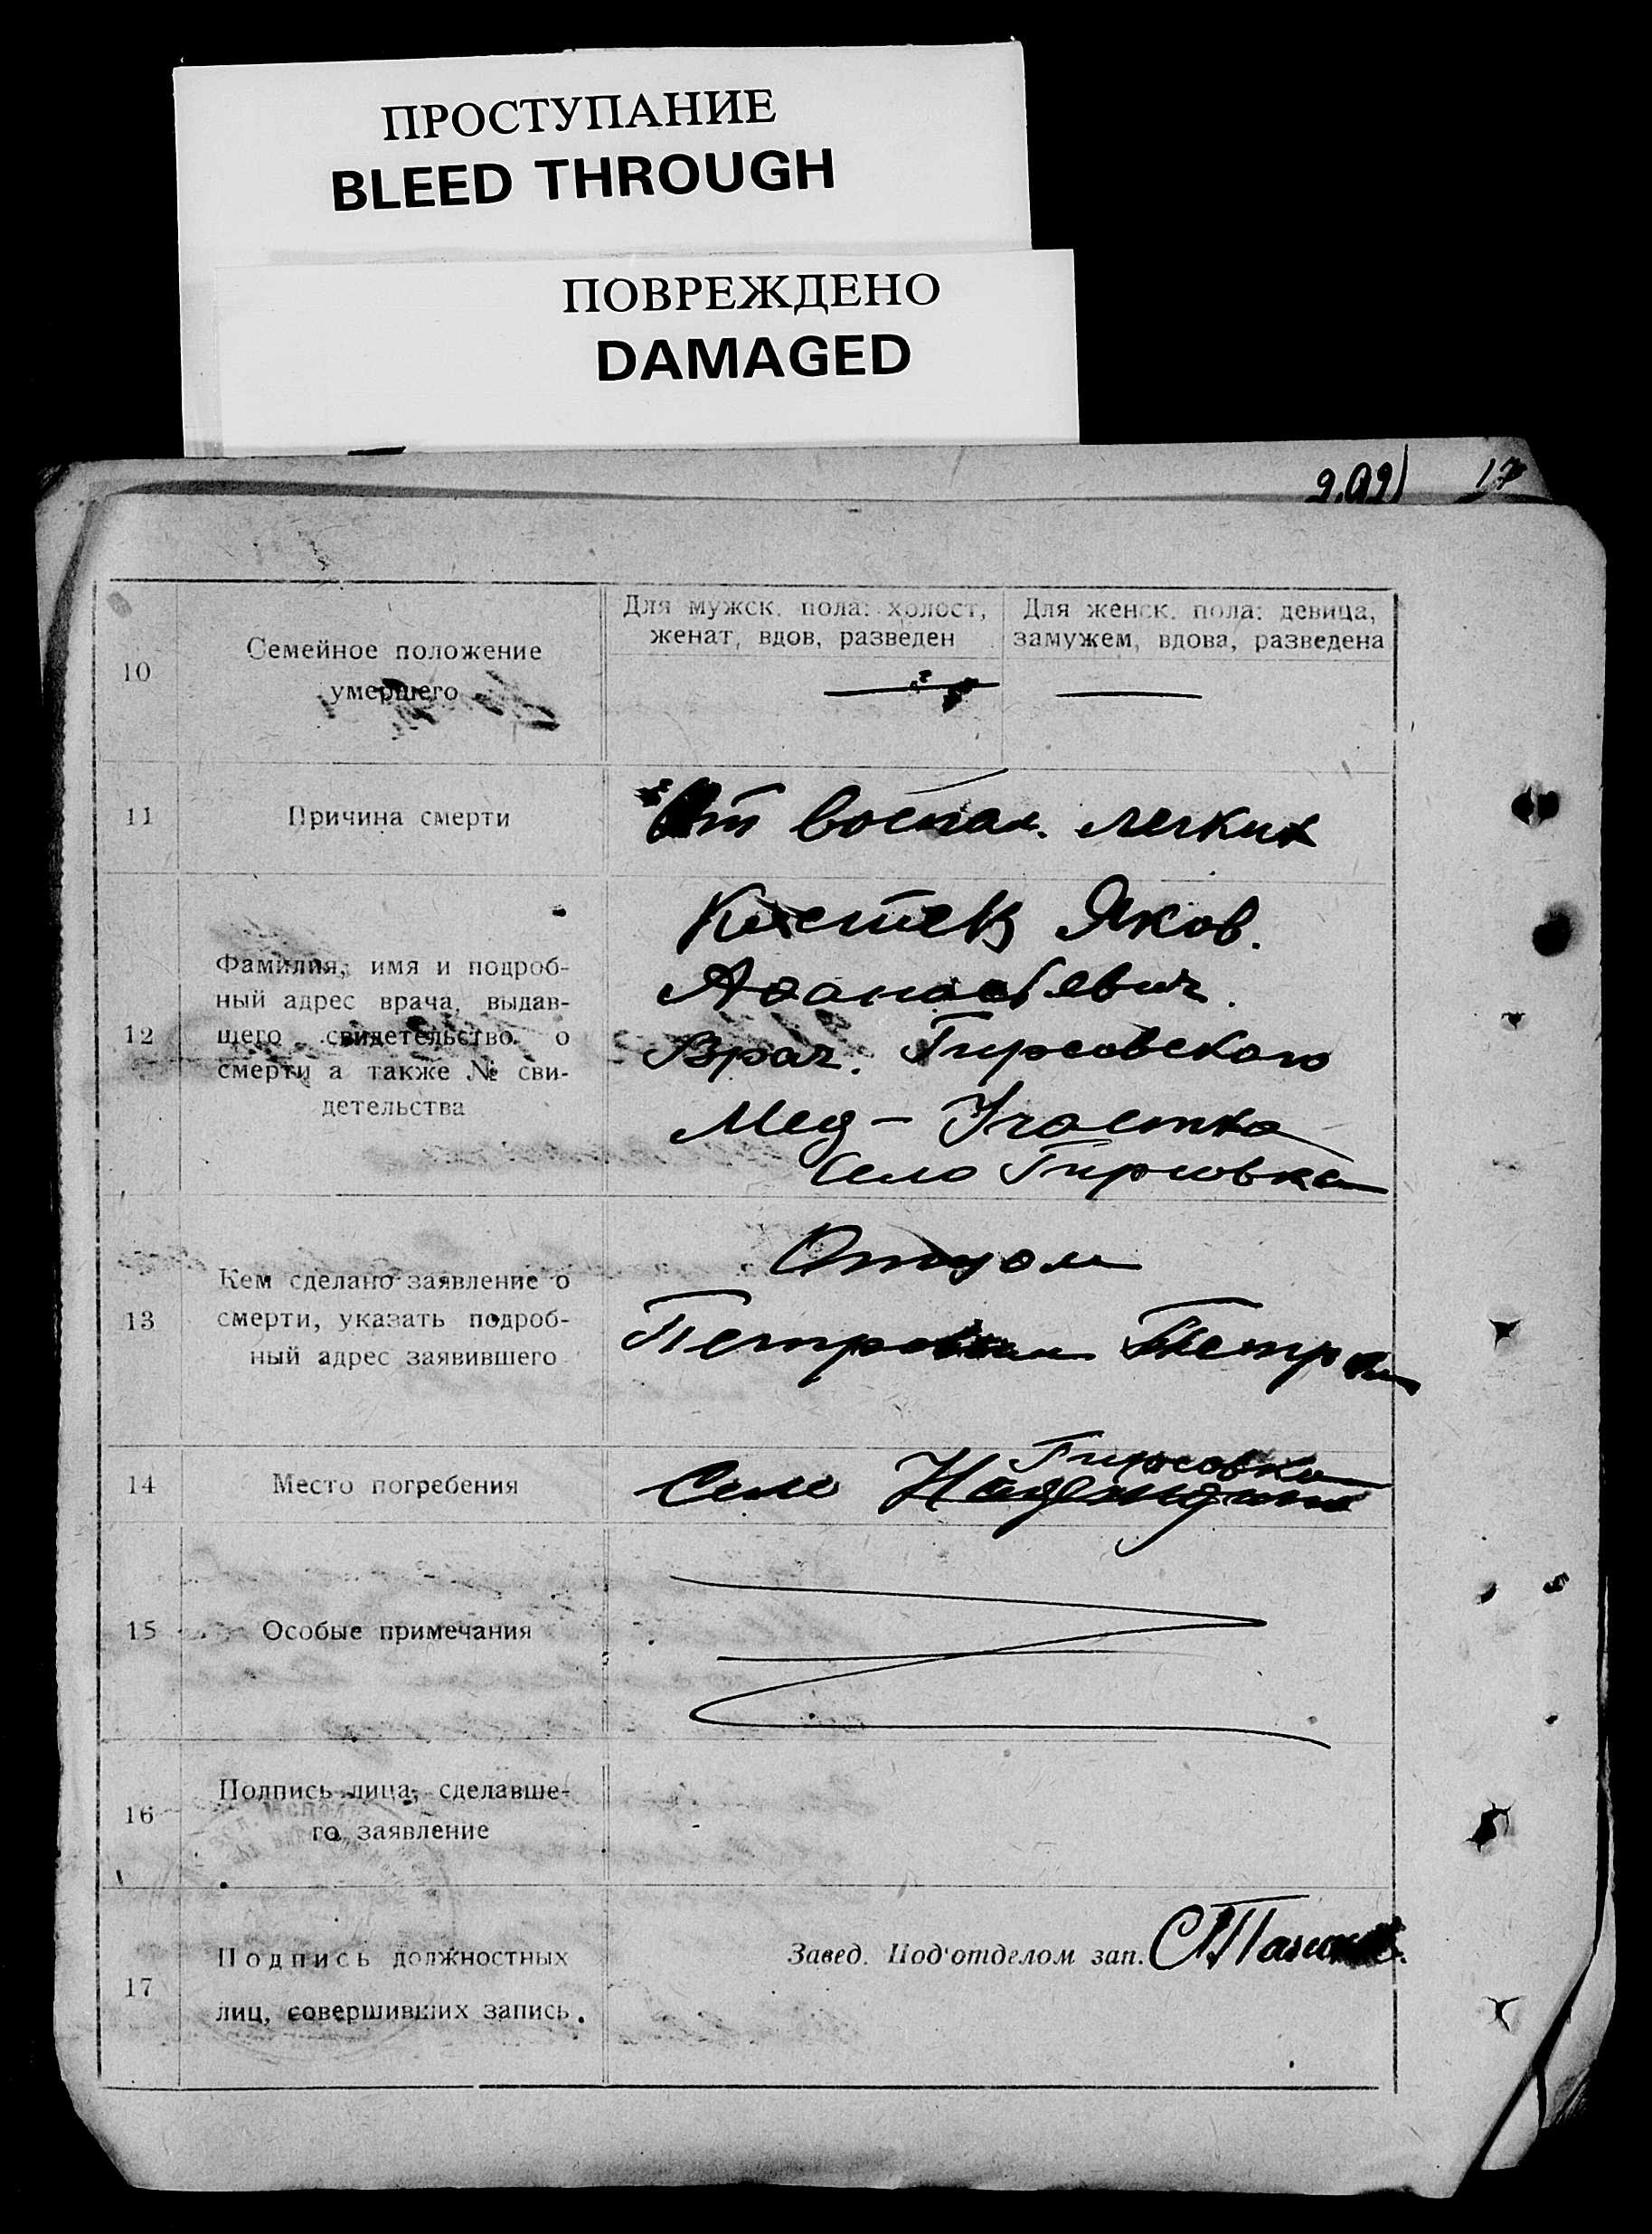 ПРОСТУПАНИЕ
BLEED THROUGH
ПОВРЕЖДЕНО
DAMAGED
17
10
Семейное положение
умершего
Для мужск. пола: холост,
женат, вдов, разведен
Для женск. пола: девица,
замужем, вдова, разведена
11
Причина смерти
От воспал. легких
12
Фамилия, имя и подроб-
ный адрес врача, выдав-
шего свидетельство о
смерти а также № сви-
детельства
Яков.
Афанасьевич.
Врач. Гирсовского
Мед - Участка
Село Гирсовка
13
Кем сделано заявление о
смерти, указать подроб-
ный адрес заявившего
Отцом
Петровым Петром
14
Место погребения
Село Гирсовка
15
Особые примечания
16
Подпись лица, сделавше-
го заявление
17
Подпись должностных
лиц, совершивших запись.
Завед. Под'отделом зап.